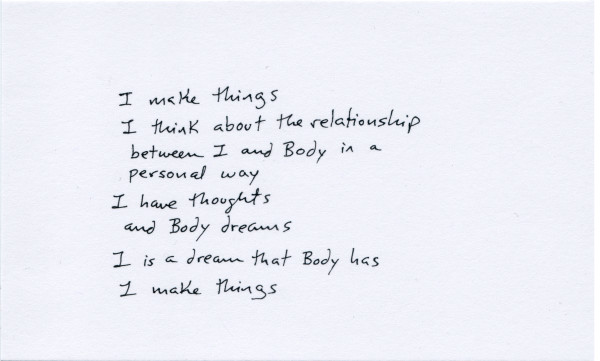 I make things
I think about the relationship
between I and Body in a
personal way
I have thoughts
and Body dreams
I is a dream that Body has
I make things